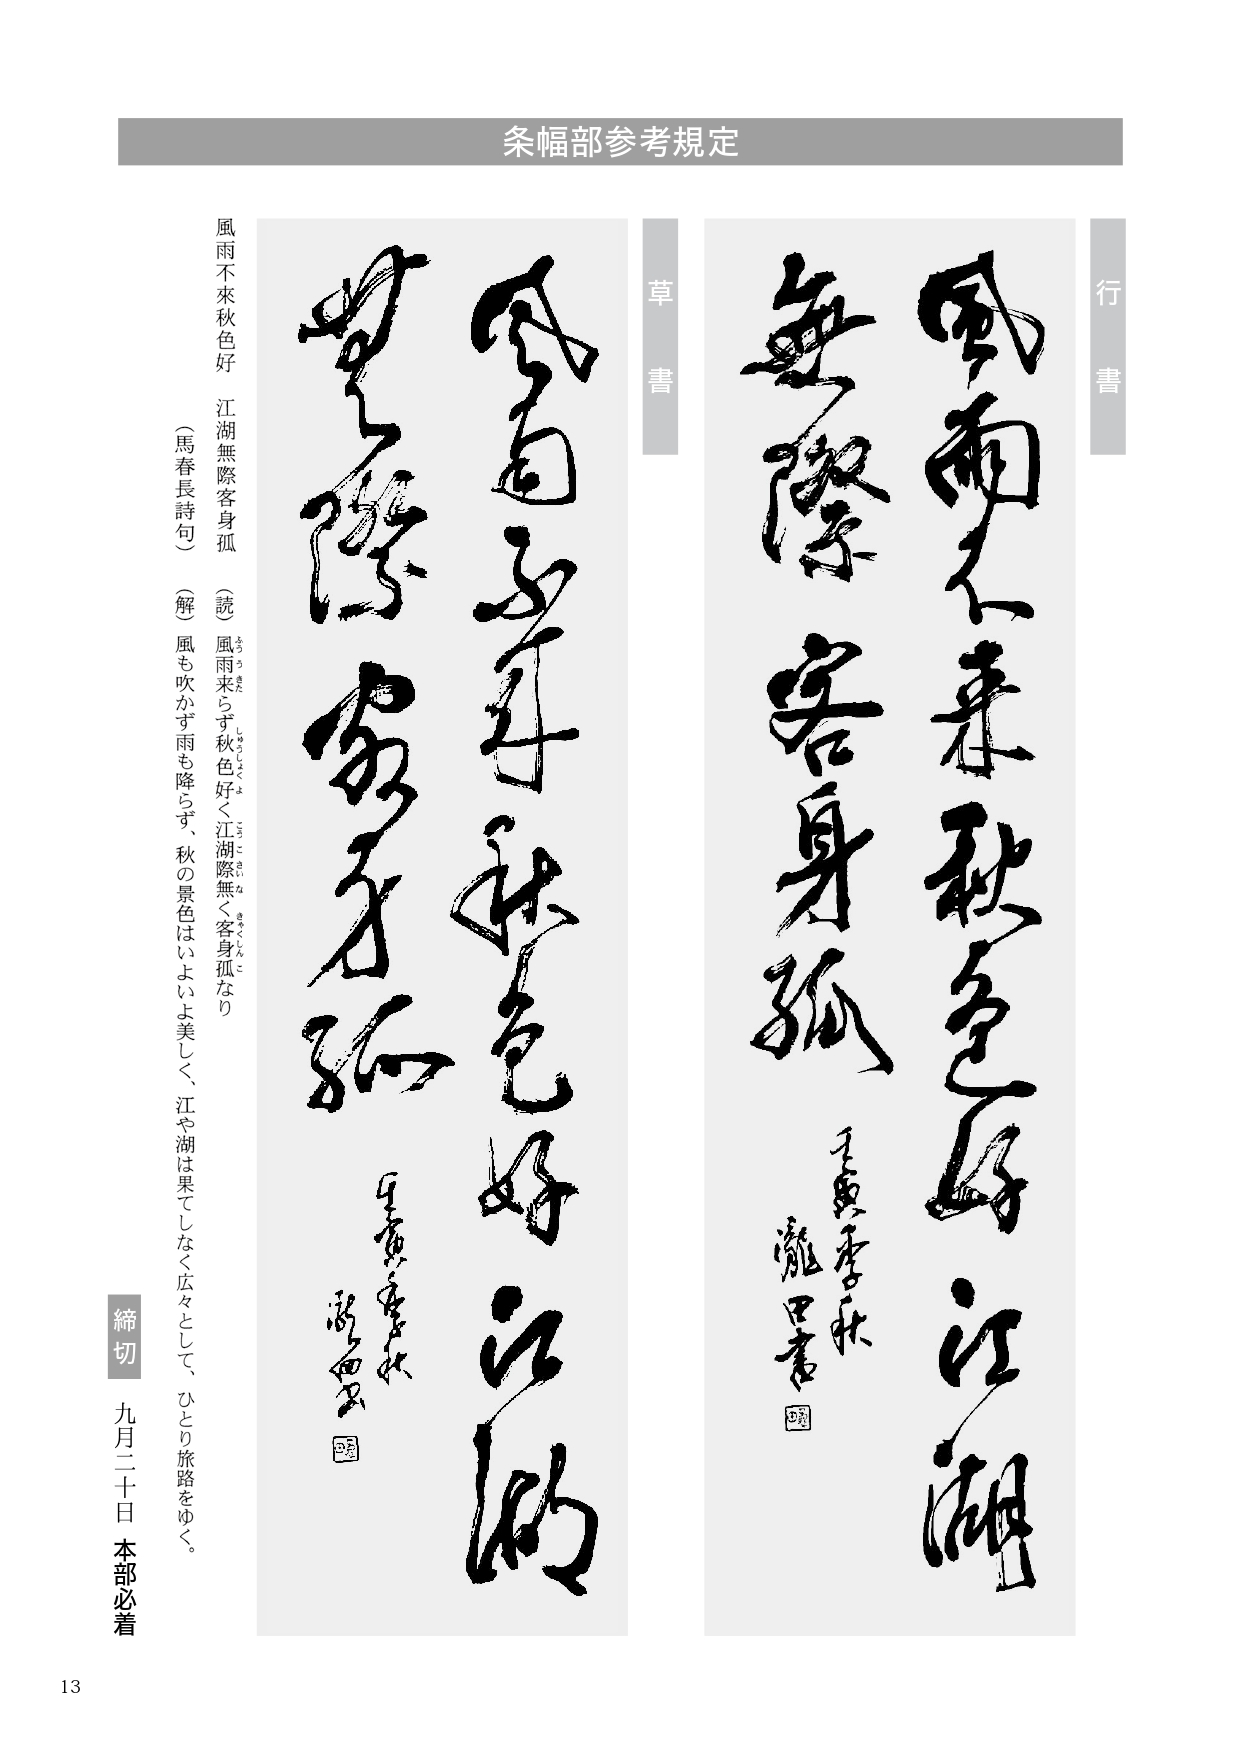 条幅部参考規定
行書
風雨不来秋色好江湖
無際客身孤
壬寅季秋
瀧田書
草書
風雨不来秋色好江湖
無際客身孤
壬寅季秋
風雨不來秋色好　江湖無際客身孤　（読）風雨来らず秋色好く江湖際無く客身孤なり
ふううきた　しゅうしょくよ　こうこさいな　きゃくしんこ
（馬春長詩句）　（解）風も吹かず雨も降らず、秋の景色はいよいよ美しく、江や湖は果てしなく広々として、ひとり旅路をゆく。
締切　九月二十日　本部必着
13